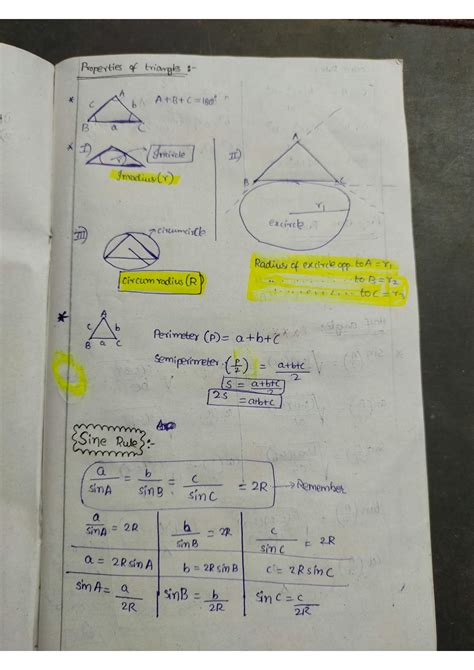 Properties of triangles :-
A
c b
B a C
A+B+C=180°
I)
r
Incircle
Inradius(r)
II)
A
B C
r₁
excircle
III)
circumcircle
circumradius(R)
Radius of excircle opp. to A = r₁
" " " to B = r₂
" " " to C = r₃
A
c b
B a C
Perimeter (P) = a+b+c
Semiperimeter (P/2) = a+b+c/2
S = a+b+c/2
2S = a+b+c
Sine Rule :-
a/sinA = b/sinB = c/sinC = 2R → Remember
a/sinA = 2R b/sinB = 2R c/sinC = 2R
a = 2RsinA b = 2RsinB c = 2RsinC
sinA = a/2R sinB = b/2R sinC = c/2R